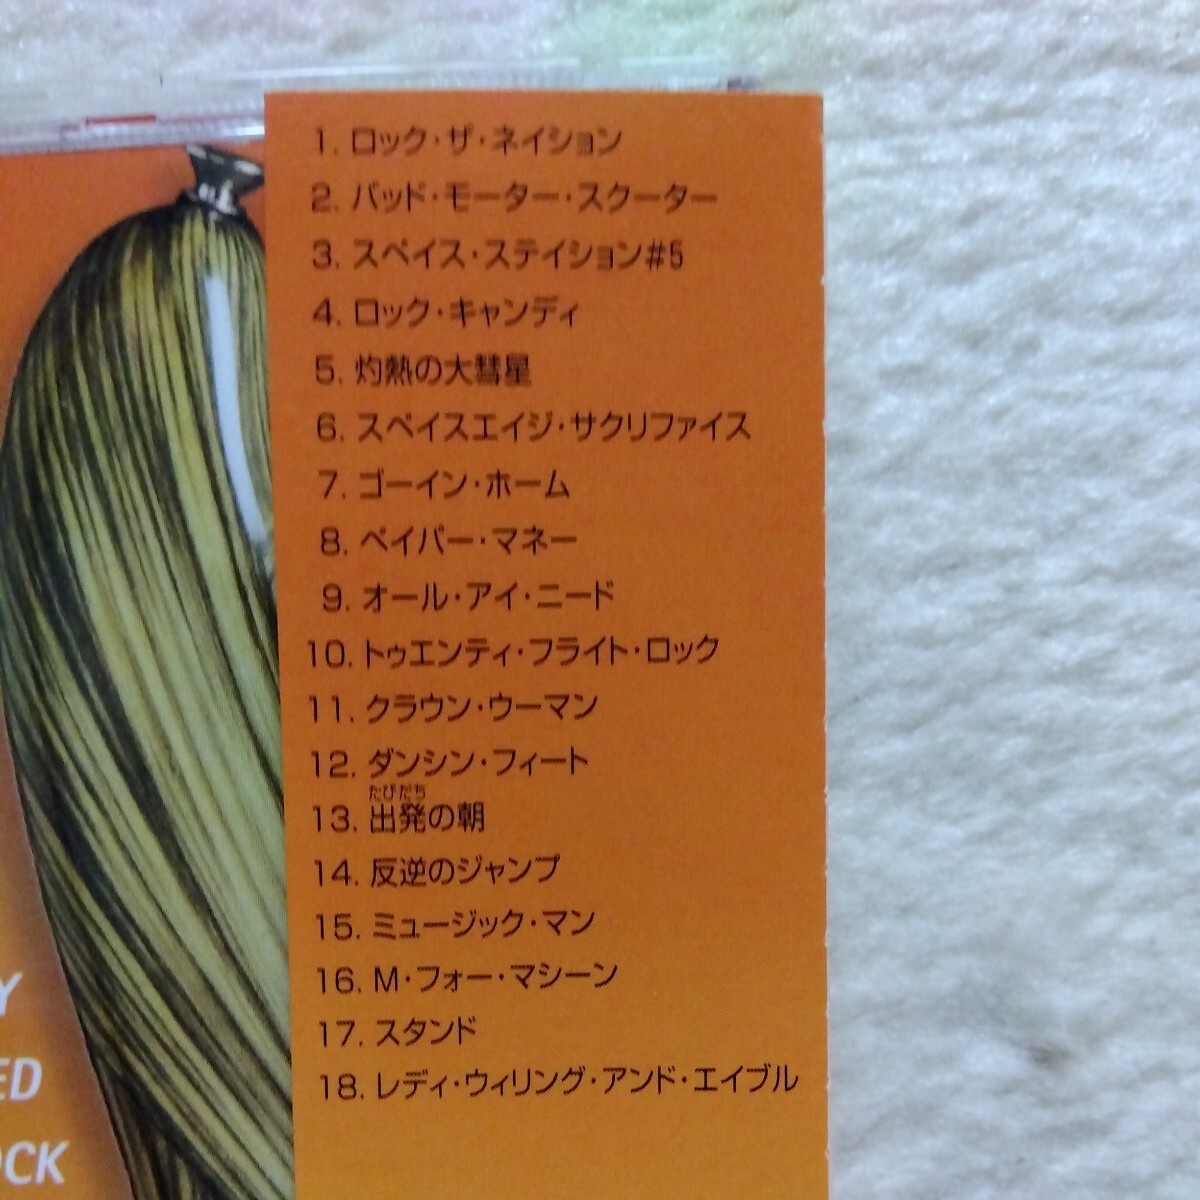 1. ロック・ザ・ネイション
2. バッド・モーター・スクーター
3. スペイス・ステイション#5
4. ロック・キャンディ
5. 灼熱の大彗星
6. スペイスエイジ・サクリファイス
7. ゴーイン・ホーム
8. ペイパー・マネー
9. オール・アイ・ニード
10. トゥエンティ・フライト・ロック
11. クラウン・ウーマン
12. ダンシン・フィート
たびだち
13. 出発の朝
14. 反逆のジャンプ
15. ミュージック・マン
16. M・フォー・マシーン
17. スタンド
18. レディ・ウィリング・アンド・エイブル
Y
ED
OCK